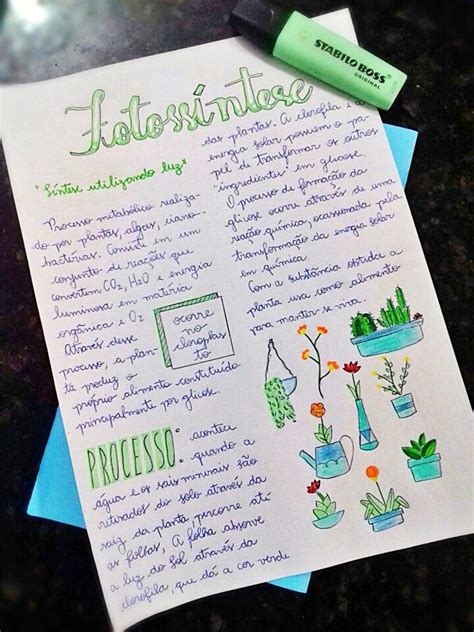 Fotossíntese
"Síntese utilizando luz"
Processo metabólico realiza-
do por plantas, algas, ciano-
bactérias. Consiste em um
conjunto de reações que
convertem CO₂, H₂O e energia
luminosa em matéria
orgânica e O₂
Através desse
processo, a plan-
ta produz o
próprio alimento constituído
principalmente por glicose.
ocorre
no
cloroplas
to
PROCESSO: acontece
quando a
água e os sais minerais são
retirados do solo através da
raiz da planta, percorre até
as folhas, A folha absorve
a luz do sol através da
clorofila, que dá a cor verde
das plantas. A clorofila e a
energia solar possuem o pa-
pel de transformar os outros
"ingredientes" em glicose.
O processo de formação da
glicose ocorre através de uma
reação química, ocasionada pela
transformação da energia solar
em química
Com a substância obtida a
planta usa como alimento
para manter-se viva
STABILO BOSS
ORIGINAL